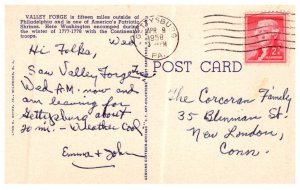 VALLEY FORGE is fifteen miles outside of
Philadelphia and is one of America's Patriotic
Shrines. Here Washington encamped during
the winter of 1777-1778 with the Continental
troops.
Wed.
Hi Folks,
Saw Valley Forge
Wed A.M. now and
am leaving for
Gettysburg about
20 mi. - Weather Cool
Emma & John
GETTYSBURG
APR 9
3 - PM
1958
PA.
2¢
POST CARD
The Corcoran Family
35 Blinman St.
New London,
Conn.